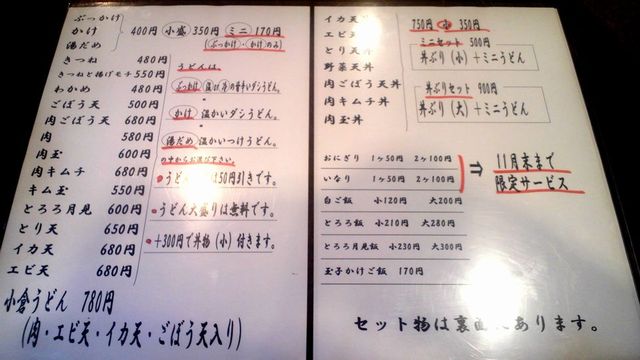 ぶっかけ
かけ
湯だめ
400円 小盛 350円 ミニ 170円
(ぶっかけ・かけのみ)
きつね 480円
きつねと揚げモチ 550円
わかめ 480円
ごぼう天 500円
肉ごぼう天 680円
肉 580円
肉玉 600円
肉キムチ 680円
キム玉 550円
とろろ月見 600円
とり天 650円
イカ天 680円
エビ天 680円
小倉うどん 780円
(肉・エビ天・イカ天・ごぼう天入り)
うどんは、
ぶっかけ
かけ 温かいダシうどん。
湯だめ 温かいつけうどん。
の中からお選び下さい。
うどん 50円引きです。
うどん大盛りは無料です。
+300円で丼物(小)付きます。
イカ天
エビ天
とり天丼
野菜天丼
肉ごぼう天丼
肉キムチ丼
肉玉丼
750円 小 350円
ミニセット 500円
丼ぶり(小)+ミニうどん
丼ぶりセット 900円
丼ぶり(大)+ミニうどん
おにぎり 1ヶ50円 2ヶ100円
いなり 1ヶ50円 2ヶ100円
⇒ 11月末まで
限定サービス
白ご飯 小120円 大200円
とろろ飯 小210円 大280円
とろろ月見飯 小230円 大300円
玉子かけご飯 170円
セット物は裏面にあります。